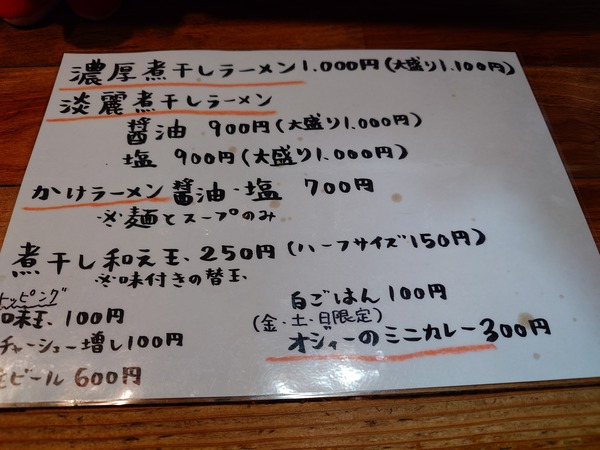 濃厚煮干しラーメン 1,000円(大盛り1,100円)
淡麗煮干しラーメン
醤油 900円(大盛り1,000円)
塩 900円(大盛り1,000円)
かけラーメン 醤油・塩 700円
※麺とスープのみ
煮干し和え玉、250円(ハーフサイズ150円)
※味付きの替玉
トッピング
味玉、100円
チャーシュー増し100円
ビール 600円
白ごはん 100円
(金・土・日限定)
オジャーのミニカレー300円